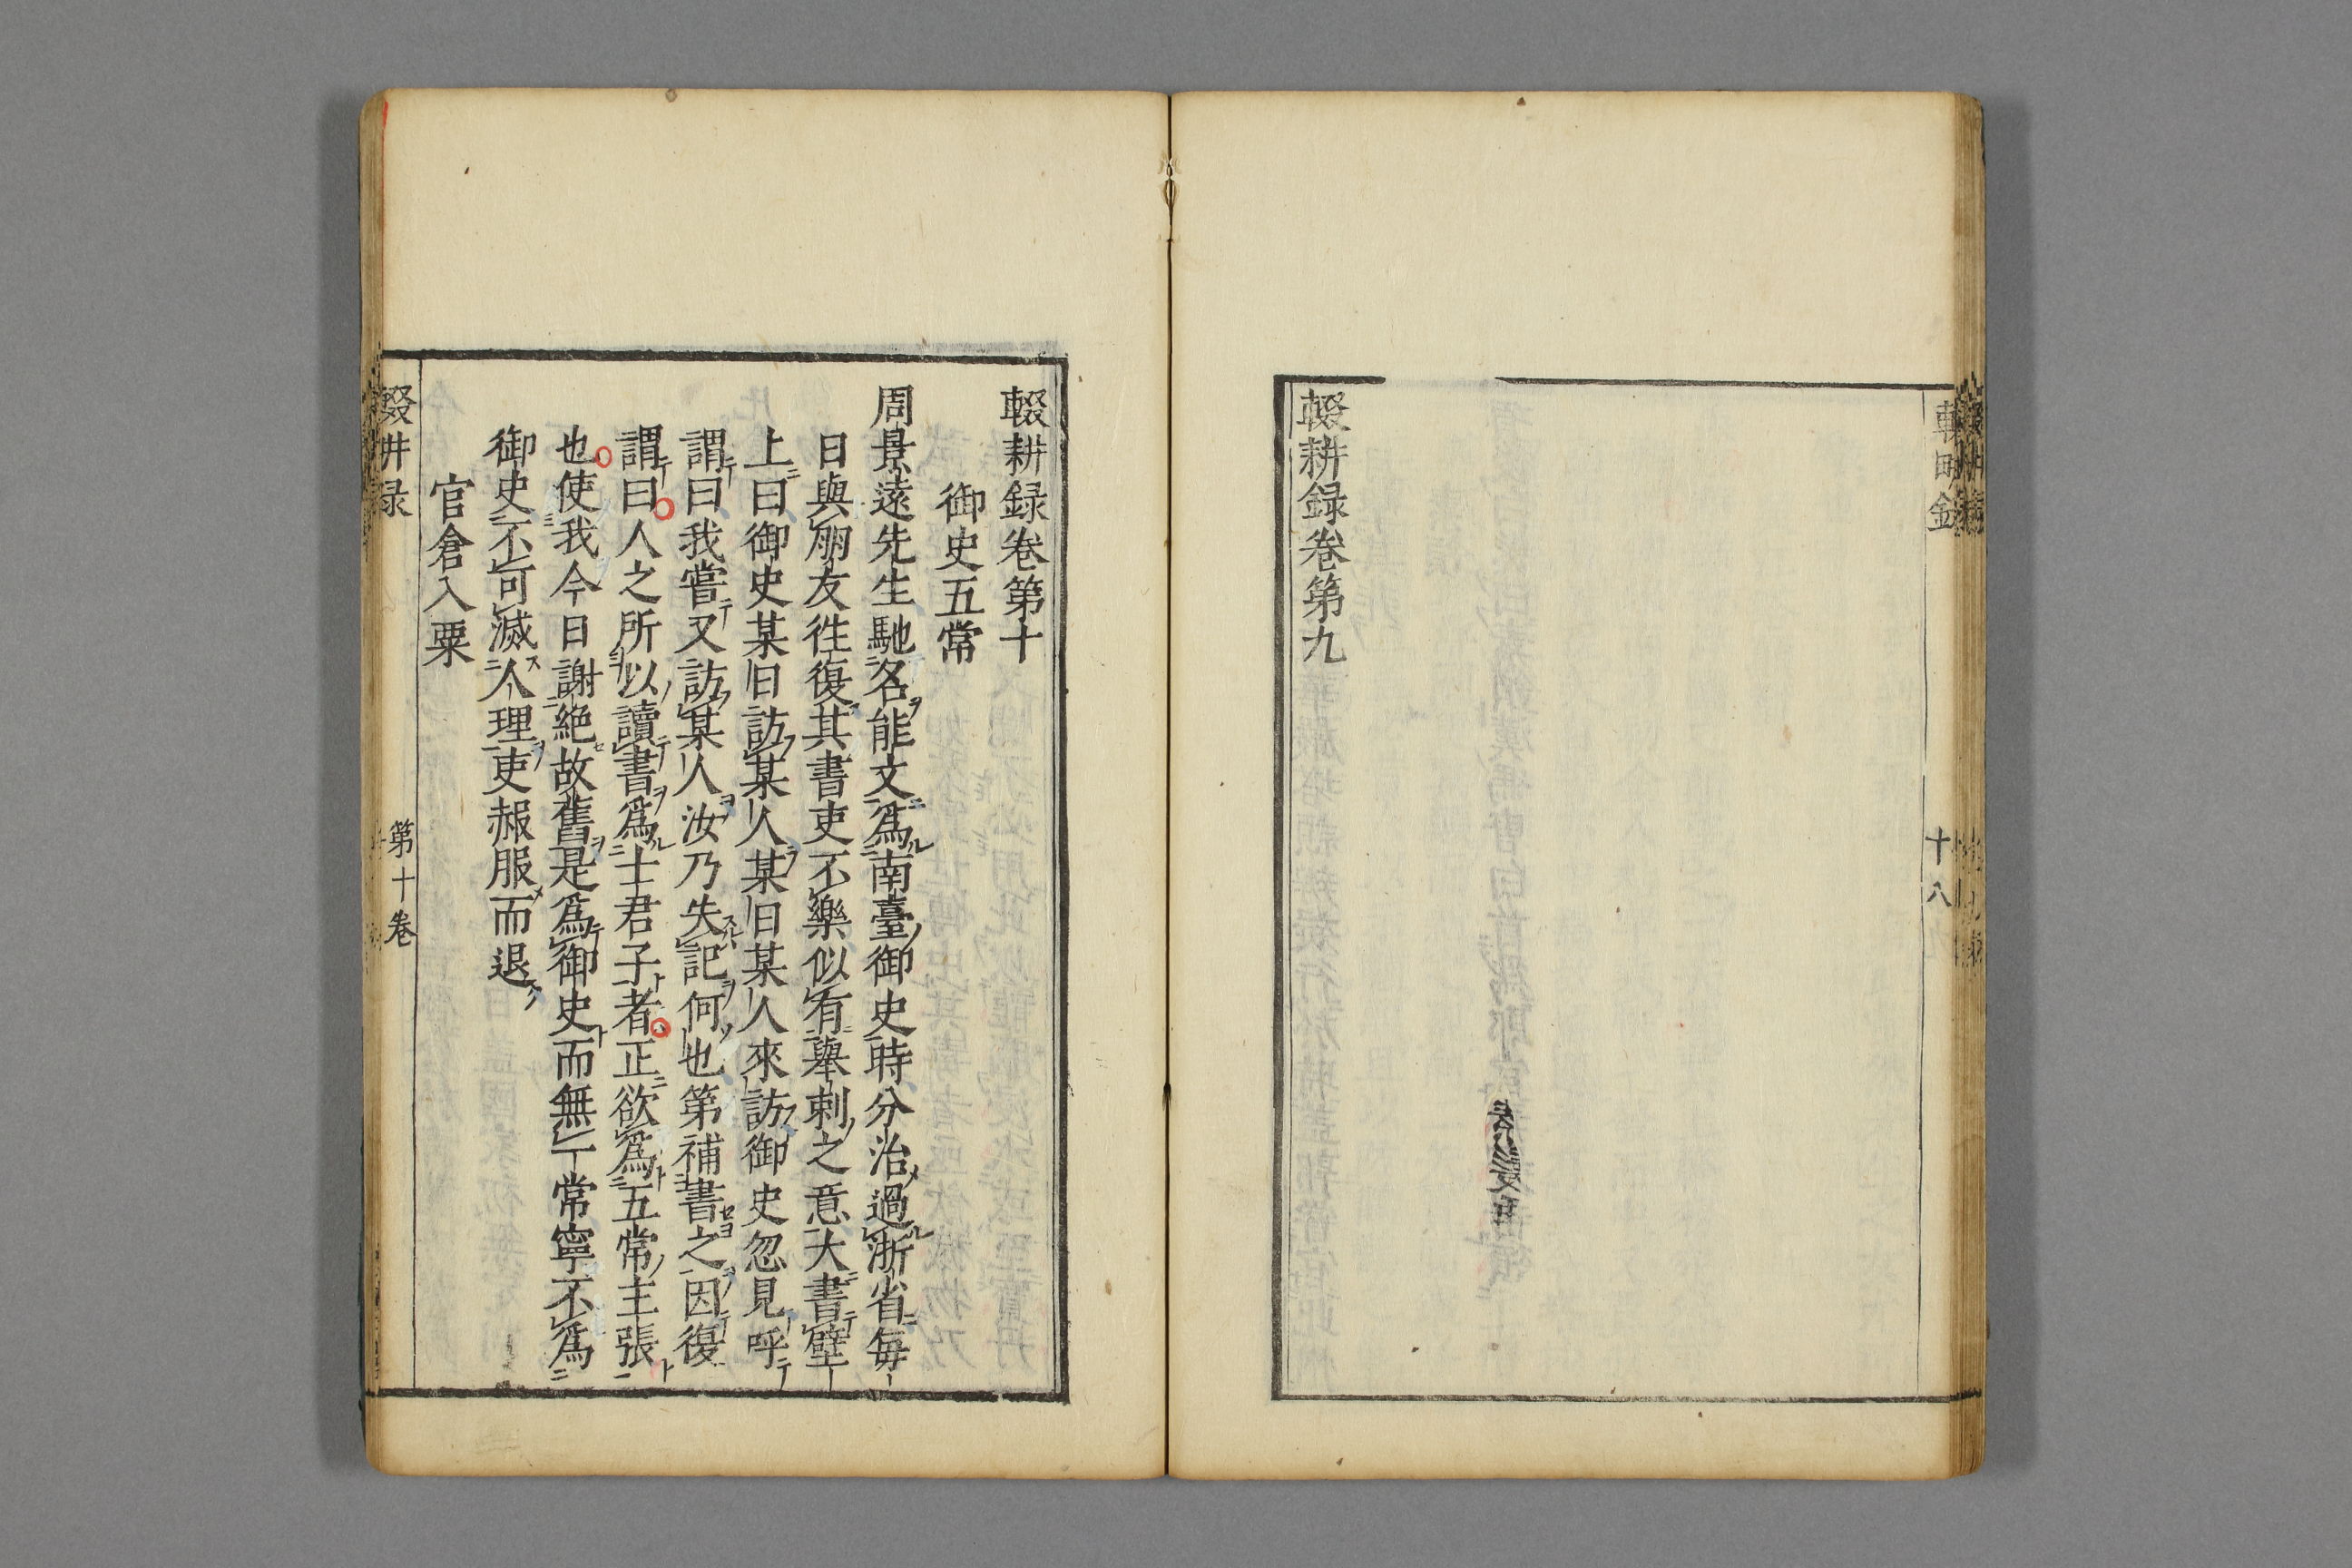 輟耕録卷第九
十八
輟耕録卷第十
御史五常
周景遠先生馳名能文爲南臺御史時分治過浙省毎
日與朋友徃復其書吏不樂似有舉刺之意大書壁
上曰御史某日訪某人某日某人來訪御史忽見呼
謂曰我嘗又訪某人汝乃失記何也第補書之因復
謂曰人之所以讀書爲士君子者正欲爲五常主張
也使我今日謝絶故舊是爲御史而無一常寧不爲
御史不可滅人理吏赧服而退
官倉入粟
第十卷